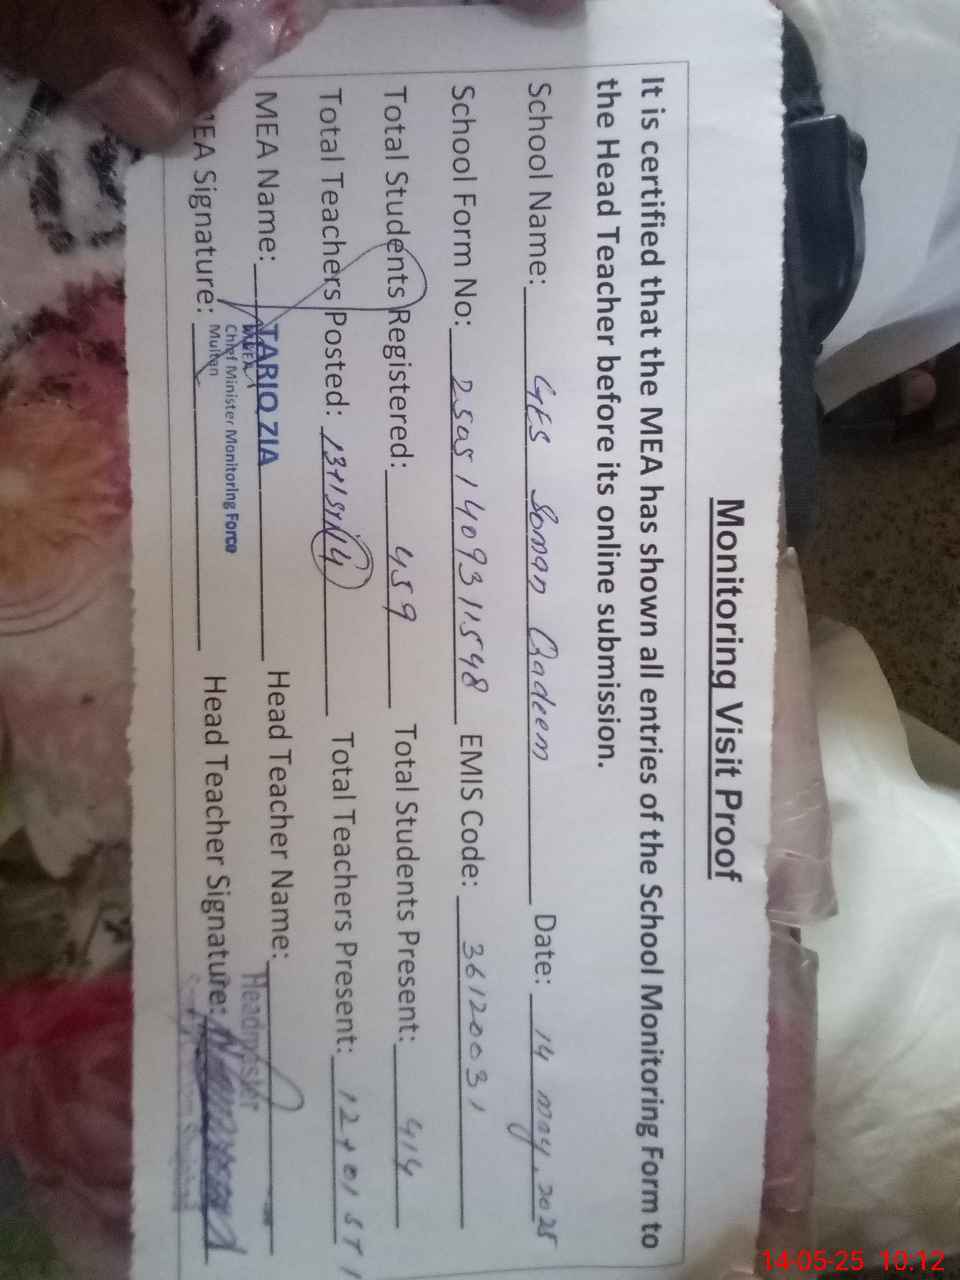 Monitoring Visit Proof
It is certified that the MEA has shown all entries of the School Monitoring Form to
the Head Teacher before its online submission.
School Name: GES Soman Qadeem Date: 14 may, 2025
School Form No: 2505 1409311598 EMIS Code: 36120031
Total Students Registered: 459 Total Students Present: 414
Total Teachers Posted: 13+1ST 14 Total Teachers Present: 12+01ST
MEA Name: TARIQ ZIA Head Teacher Name:
MEA
Chief Minister Monitoring Force
Multan
MEA Signature: Head Teacher Signature:
Headmaster
14-05-25 10:12